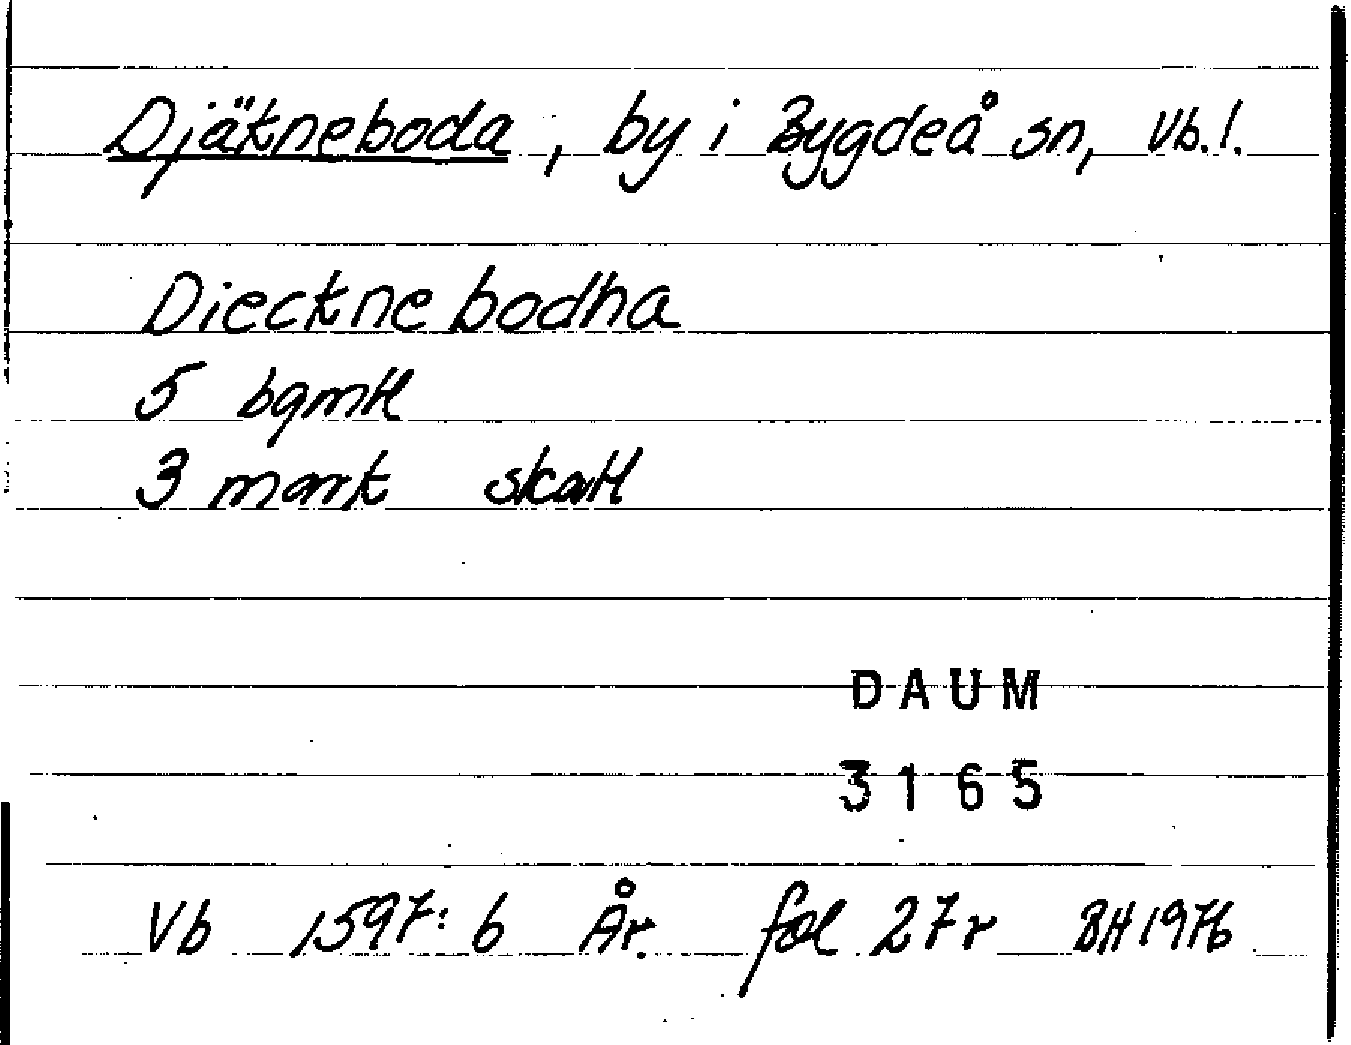 Djäkneboda, by i Bygdeå sn, Vb.l.
Dieckne bodha
5 bgmtl
3 mark skatt
DAUM
3165
Vb 1597:6 År. fol 27r BH 1976